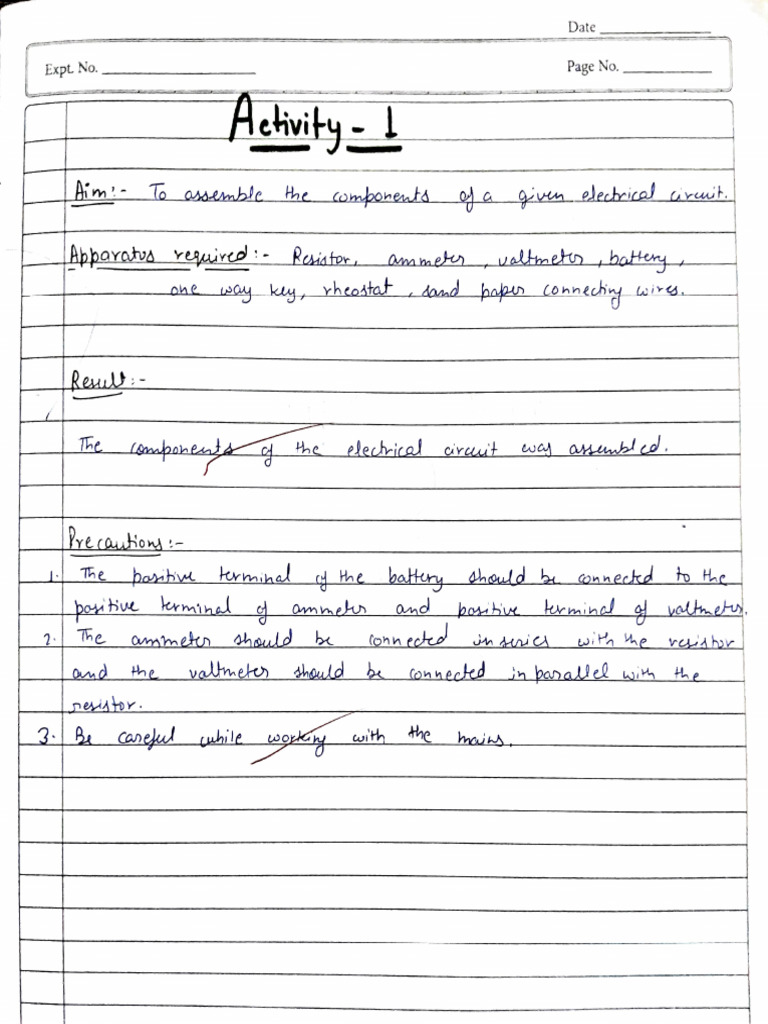 Date
Expt. No.
Page No.
Activity - 1
Aim:- To assemble the components of a given electrical circuit.
Apparatus required:- Resistor, ammeter, voltmeter, battery,
one way key, rheostat, sand paper connecting wires.
Result:-
The components of the electrical circuit was assembled.
Precautions:-
1. The positive terminal of the battery should be connected to the
positive terminal of ammeter and positive terminal of voltmeter.
2. The ammeter should be connected in series with the resistor
and the voltmeter should be connected in parallel with the
resistor.
3. Be careful while working with the mains.